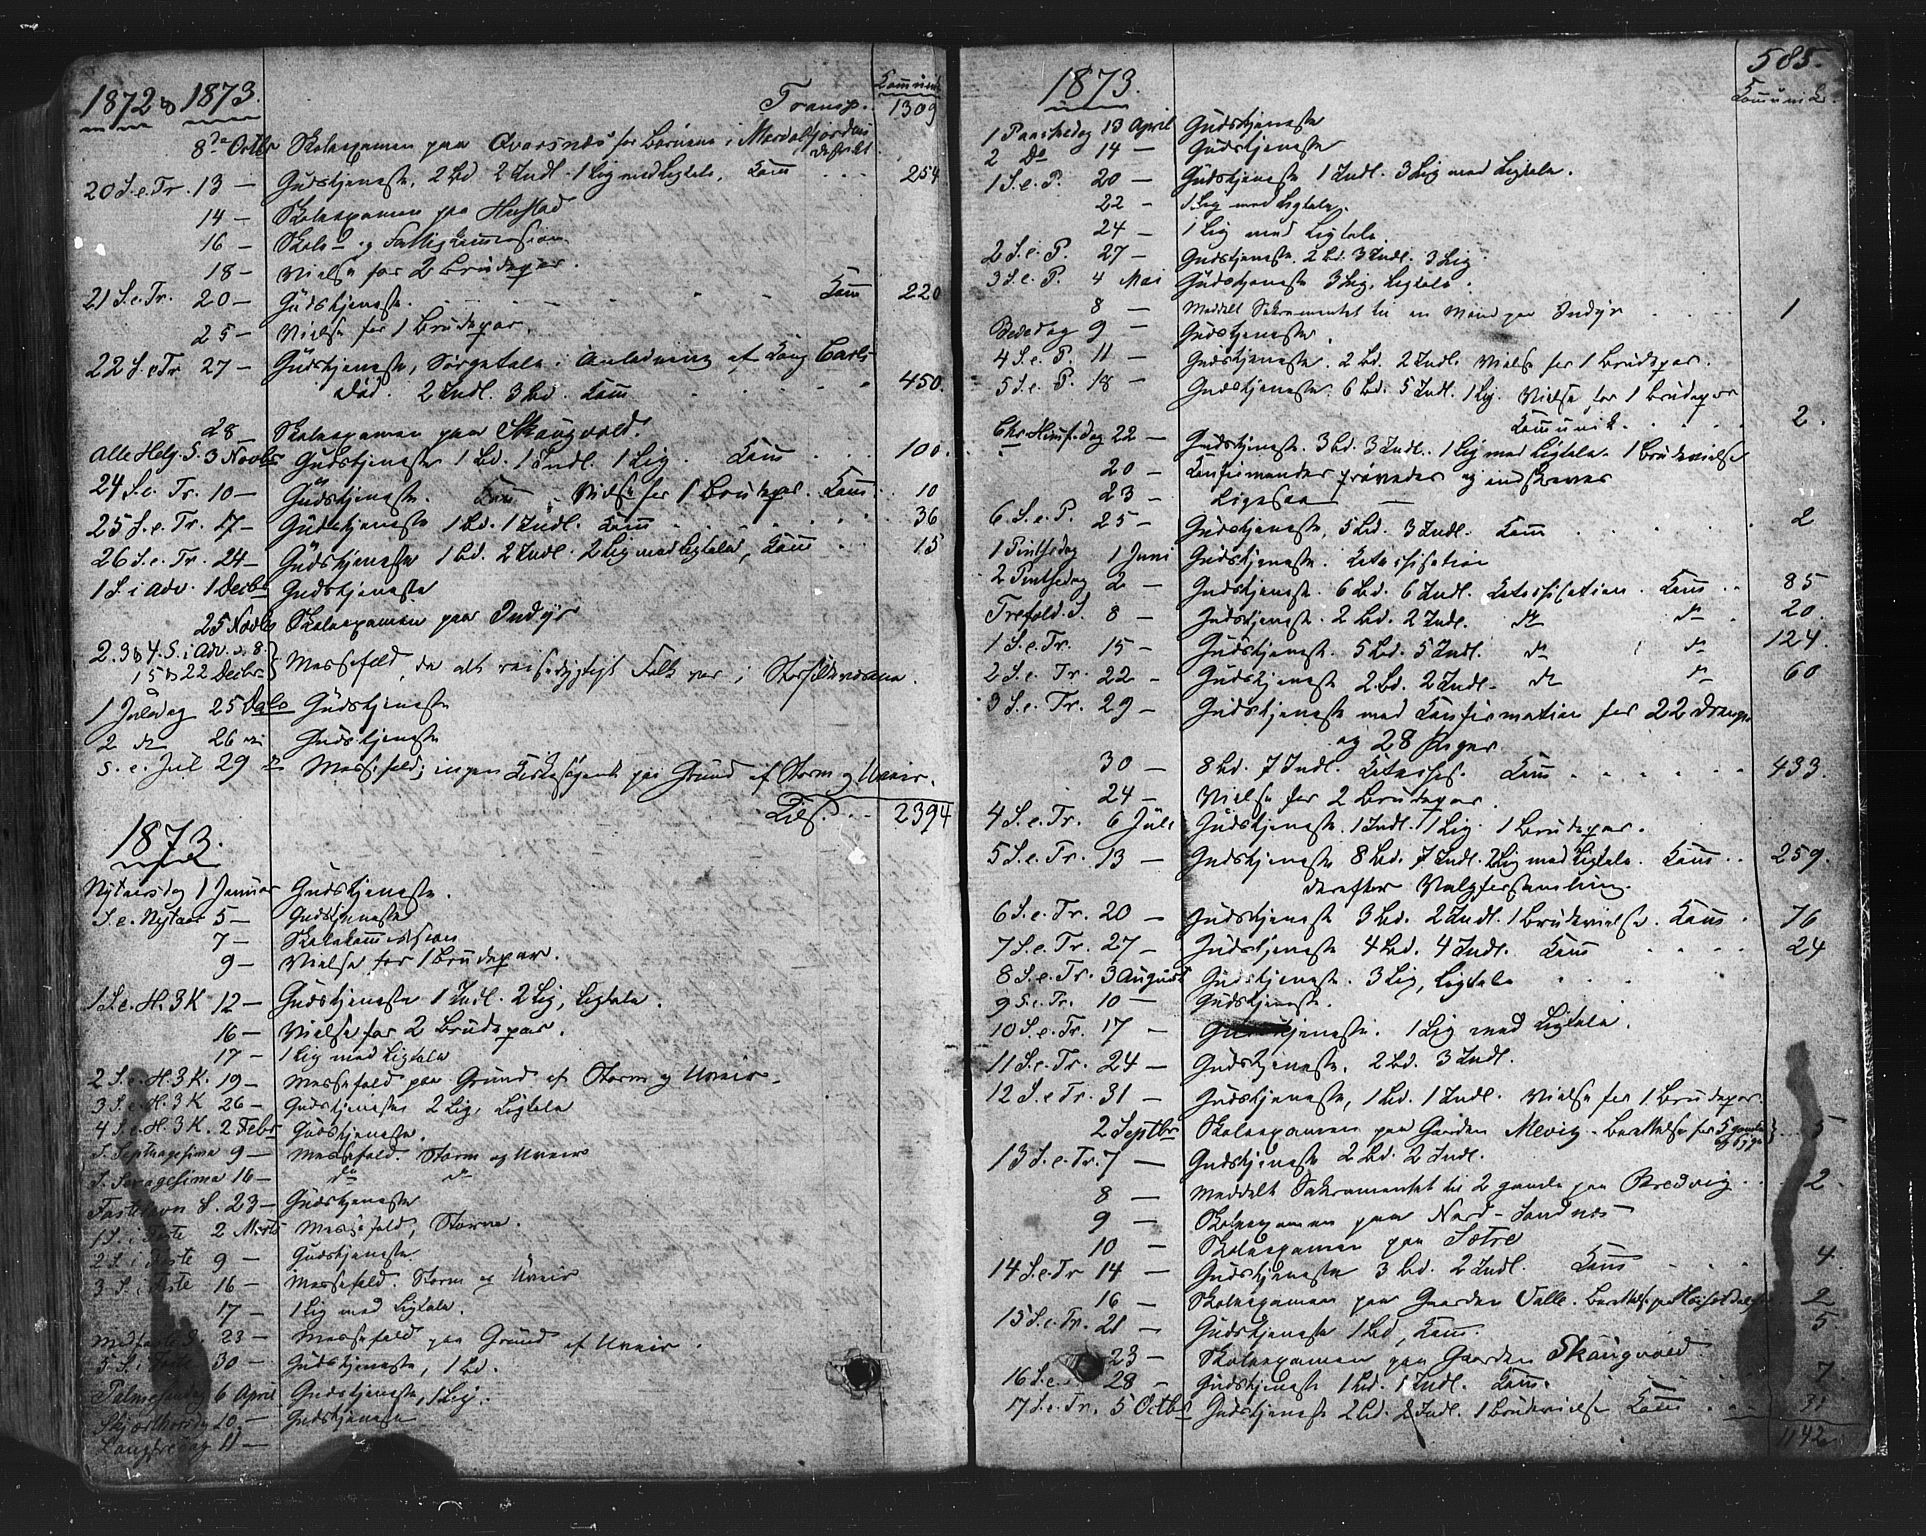 1872 & 1873.
Transp.
Communik.
1309
8de Octbr Skoleexamen paa Qvarsnæs for Børnene i Mordalsfjordens
distrikt.
20 S. e. Tr. 13 — Gudstjeneste, 2 Bd 2 Indl. 1 Lig med Ligtale. Com 254
14 — Skoleexamen paa Hustad
16 — Skole- og Fattigcommission
18 — Vielse for 2 Brudepar.
21 S. e. Tr. 20 — Gudstjeneste. Com 220
25 — Vielse for 1 Brudepar.
22 S. e Tr 27 — Gudstjeneste, Sørgetale i Anledning af Kong Carls
Død. 2 Indl. 3 Bd. Com 450.
28 Skoleexamen paa Skaugvold.
Alle Helg. S. 3 Novbr Gudstjeneste 1 Bd. 1 Indl. 1 Lig. Com 100.
24 S. e. Tr. 10 — Gudstjeneste. Vielse for 1 Brudepar. Com 10
25 S. e. Tr. 17 — Gudstjeneste 1 Bd. 1 Indl. Com 36
26 S. e. Tr. 24 — Gudstjeneste 1 Bd. 2 Indl. 2 Lig med Ligtale, Com 15
1 S. i Adv. 1 Decbr Gudstjeneste
25 Novbr Skoleexamen paa Indyr
2. 3 & 4. S. i Adv. d. 8.
15 & 22 Decbr. Messefald, da alt reisedygtigt Folk var i Storsildværkene.
1 Juledag 25 Dcbr Gudstjeneste
2 do 26 — Gudstjeneste
S. e. Jul 29 do Messefald, ingen Kirkesøgende paa Grund af Storm og Uveir.
Tils. 2394
1873.
Nytaarsdag 1 Januar Gudstjeneste.
S. e. Nytaar 5 — Gudstjeneste
7 — Skolekommission
9 — Vielse for 1 Brudepar.
1 S. e. H. 3 K 12 — Gudstjeneste 1 Indl. 2 Lig, Ligtale.
16 — Vielse for 2 Brudepar.
17 — 1 Lig med Ligtale
2 S. e. H. 3 K. 19 — Messefald paa Grund af Storm og Uveir.
3 S. e. H. 3 K 26 — Gudstjeneste 2 Lig, Ligtale
4 S. e. H. 3 K. 2 Febr Gudstjeneste.
S. Septuagesima 9 — Messefald. Storm og Uveir
S. Sexagesima 16 — do do
Fastelavn S. 23 — Gudstjeneste
1 S. i Faste 2 Marts Messefald, Storm.
2 S. i Faste 9 — Gudstjeneste
3 S. i Faste 16 — Messefald. Storm og Uveir
17 — 1 Lig med Ligtale.
Midfaste S. 23 — Messefald paa Grund af Uveir.
5 S. i Faste 30 — Gudstjeneste, 1 Bd.
Palmesøndag 6 April Gudstjeneste, 1 Lig.
Skjærthorsdag 10 — Gudstjeneste
Langfredag 11 —
1873.
585.
Communik.
1 Paaskedag 13 April Gudstjeneste
2 Do 14 — Gudstjeneste
1 S. e. P. 20 — Gudstjeneste 1 Indl. 3 Lig med Ligtale.
22 — 1 Lig med Ligtale.
24 — 1 Lig med Ligtale
2 S. e. P. 27 — Gudstjeneste. 2 Bd. 3 Indl. 3 Lig.
3 S. e. P. 4 Mai Gudstjeneste 3 Lig, Ligtale.
8 — Meddelt Sakramentet til en Mand paa Indyr 1
Bededag 9 — Gudstjeneste.
4 S. e. P. 11 — Gudstjeneste. 2 Bd. 2 Indl. Vielse for 1 Brudepar.
5 S. e. P. 18 — Gudstjeneste. 6 Bd. 5 Indl. 1 Lig. Vielse for 1 Brudepar
Communik. 2.
Chr. Himf.dag 22 — Gudstjeneste. 3 Bd. 3 Indl. 1 Lig med Ligtale. 1 Brudevielse
20 — Konfirmander prøvedes og indskreves
23 — Ligesaa
6. S. e. P. 25 — Gudstjeneste, 5 Bd. 3 Indl. Com 2
1 Pintsedag 1 Juni Gudstjeneste. Katechisation
2 Pintsedag 2 — Gudstjeneste. 6 Bd. 6 Indl. Katechisation. Com 85
Trefold. S. 8 — Gudstjeneste. 2 Bd. 2 Indl. do do 20.
1 S. e. Tr. 15 — Gudstjeneste. 5 Bd. 5 Indl. do do 124.
2 S. e. Tr. 22 — Gudstjeneste 2 Bd. 2 Indl. do do 60
3 S. e. Tr. 29 — Gudstjeneste med Confirmation for 22 Drenge
og 28 Piger.
30 — 8 Bd. 7 Indl. Kateches. Com 433.
24 — Vielse for 2 Brudepar.
4 S. e. Tr. 6 Juli Gudstjeneste. 1 Indl. 1 Lig. 1 Brudepar.
5 S. e. Tr. 13 — Gudstjeneste 8 Bd. 7 Indl. 2 Lig med Ligtale. Com 259.
derefter Valgforsamling.
6 S. e. Tr. 20 — Gudstjeneste 3 Bd. 2 Indl. 1 Brudevielse. Com 76
7 S. e. Tr. 27 — Gudstjeneste 4 Bd. 4 Indl. Com 24
8 S. e. Tr. 3 August Gudstjeneste. 3 Lig, Ligtale
9 S. e. Tr. 10 — Gudstjeneste.
10 S. e. Tr. 17 — Gudstjeneste. 1 Lig med Ligtale.
11 S. e. Tr. 24 — Gudstjeneste. 2 Bd. 3 Indl.
12 S. e Tr. 31 — Gudstjeneste, 1 Bd. 1 Indl. Vielse for 1 Brudepar.
2 Septbr Skoleexamen paa Gaarden Mevig. Berettelse for 5 gamle
og syge 5
13 S. e. Tr. 7 — Gudstjeneste 2 Bd. 2 Indl.
8 — Meddelt Sakramentet til 2 gamle paa Bredvig 2.
9 — Skoleexamen paa Nord-Sandnæs
10 — Skoleexamen paa Sætre
14 S. e. Tr 14 — Gudstjeneste 3 Bd. 2 Indl. Com 4.
16 — Skoleexamen paa Gaarden Valle. Berettelse 2
15 S. e. Tr. 21 — Gudstjeneste 1 Bd, Com. 5
23 — Skoleexamen paa Gaarden Skaugvold
16 S. e. 28 — Gudstjeneste 1 Bd. 1 Indl. Com. 7.
17 S. e. Tr. 5 Octbr Gudstjeneste 2 Bd. 2 Indl. 1 Brudevielse Com 31
1142